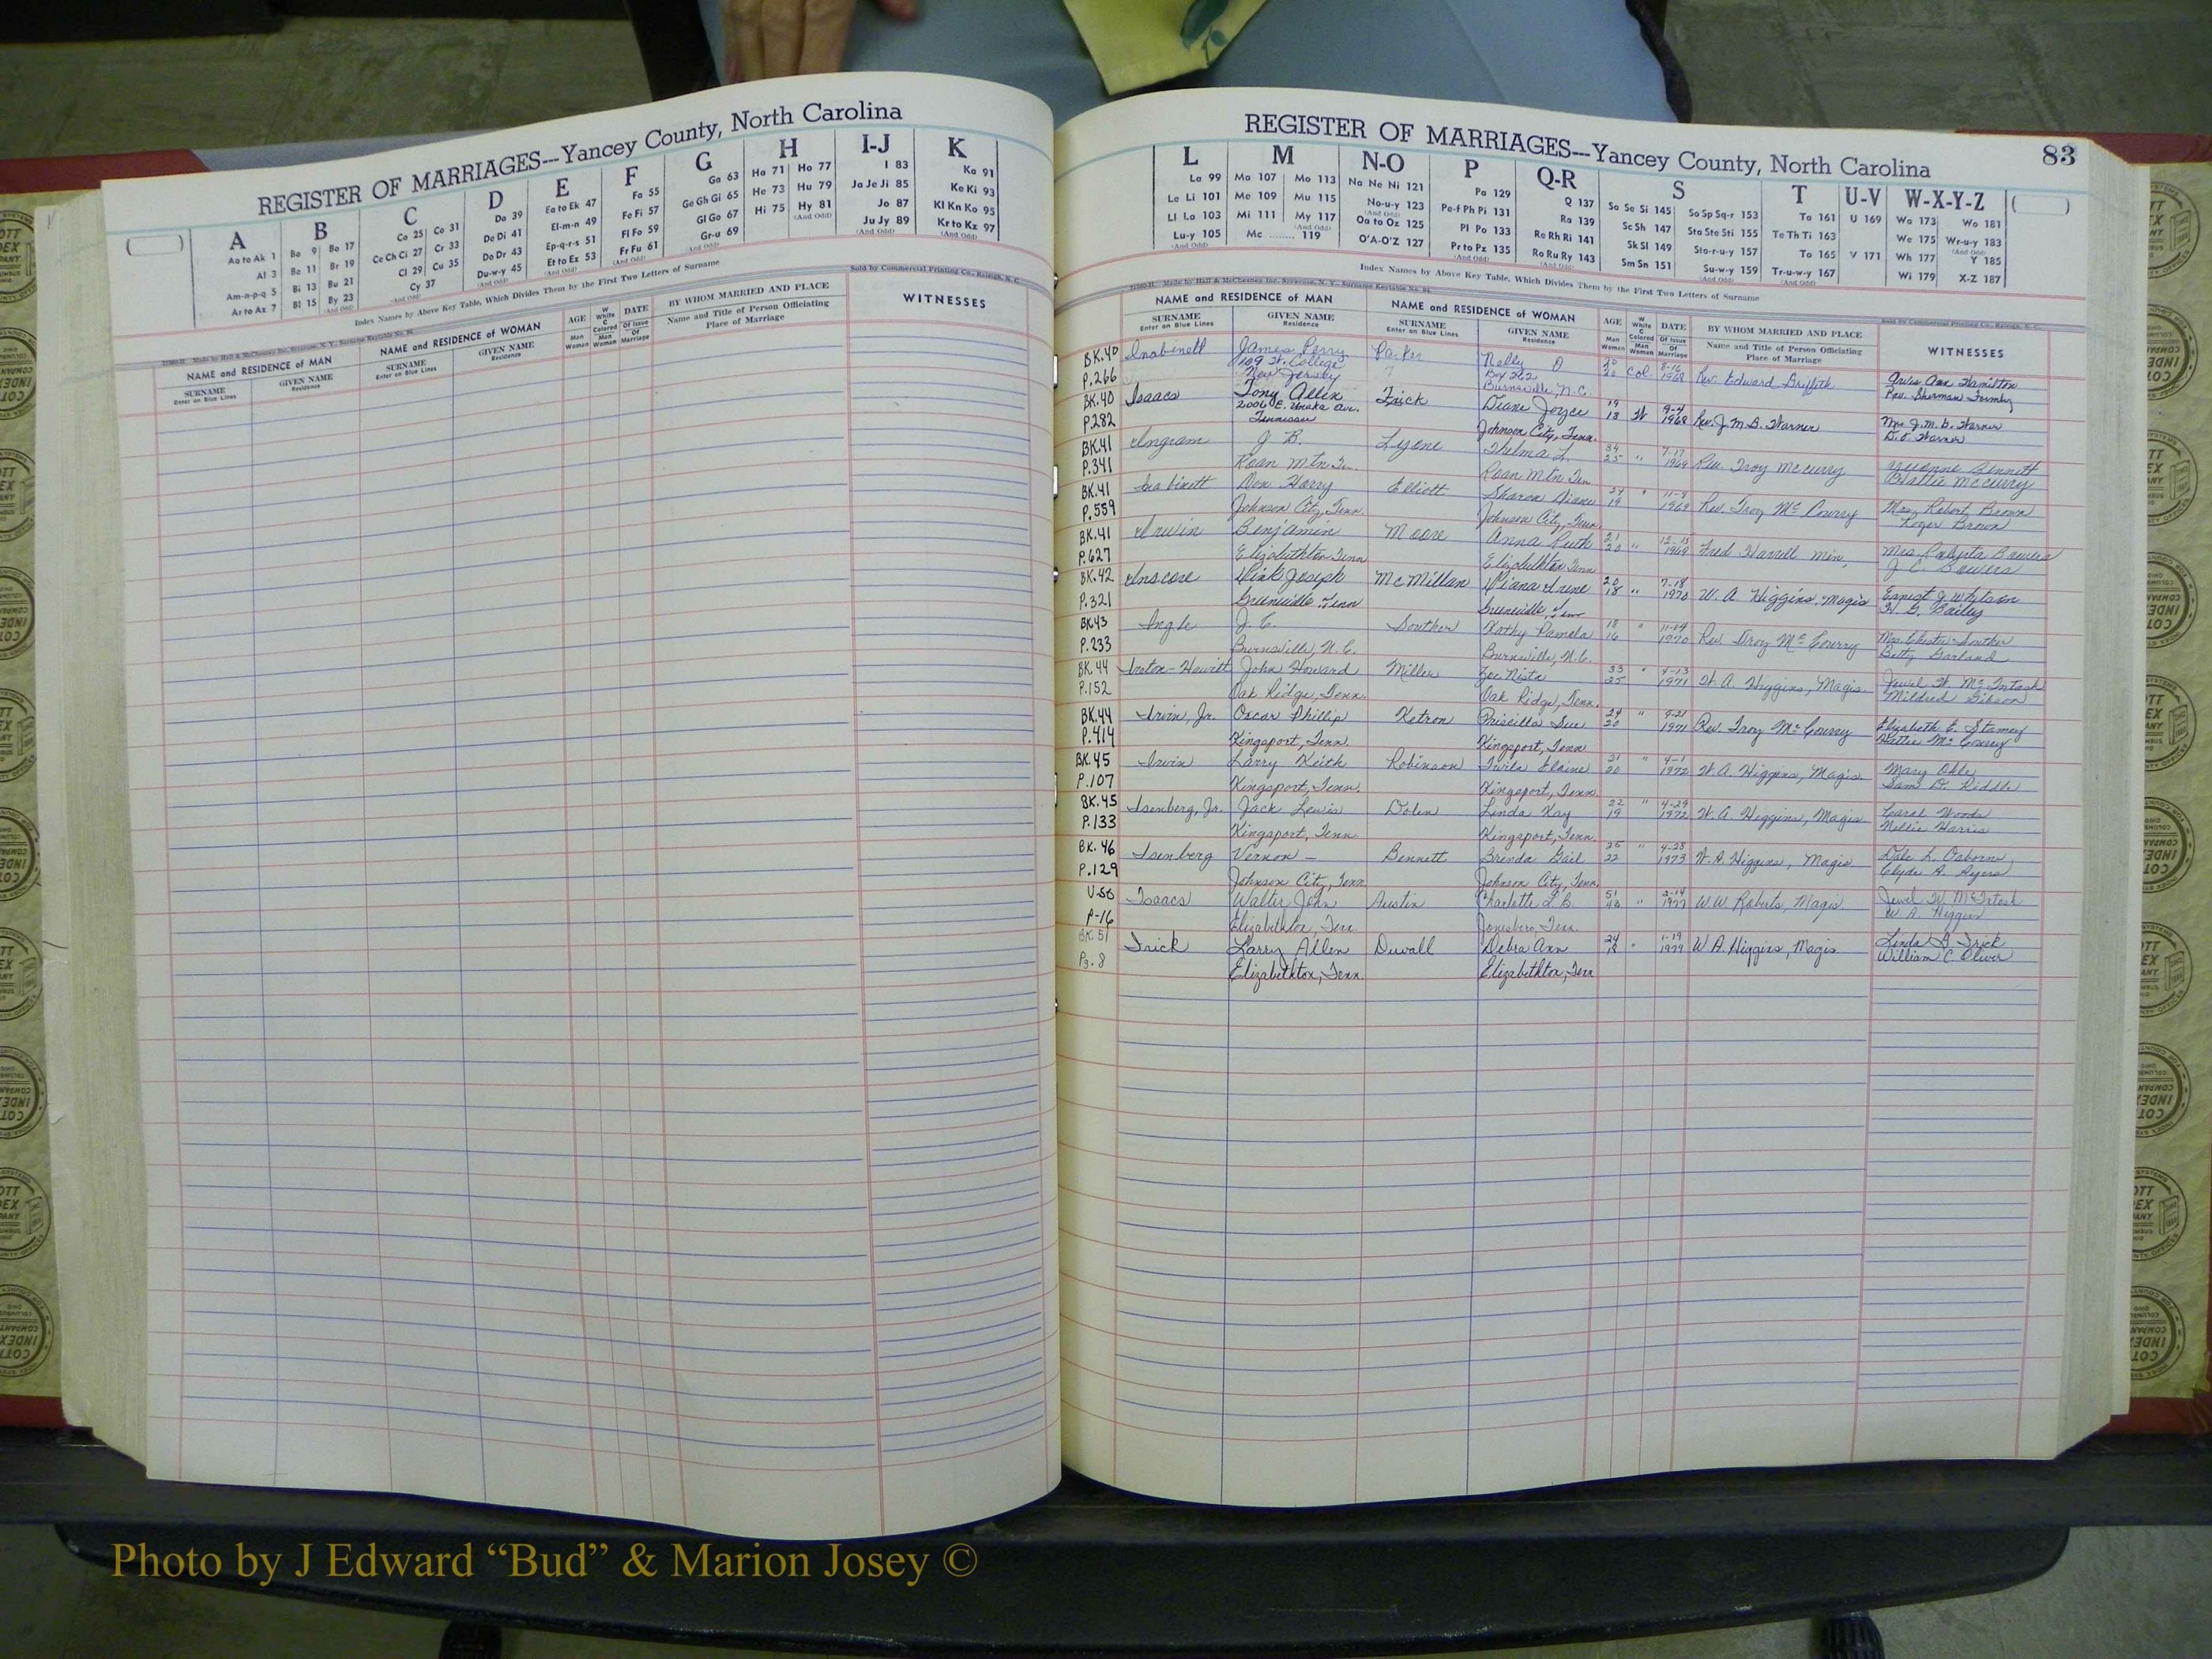 REGISTER OF MARRIAGES---Yancey County, North Carolina
A B C D E F G H I-J K
Aa to Ak 1 Ba 9 Bo 17 Ca 25 Co 31 Da 39 Ea to Ek 47 Fa 55 Ga 63 Ha 71 Ho 77 I 83 Ka 91
Al 3 Be 11 Br 19 Ce Ch Ci 27 Cr 33 De Di 41 El-m-n 49 Fe Fi 57 Ge Gh Gi 65 He 73 Hu 79 Ja Je Ji 85 Ke Ki 93
Am-n-p-q 5 Bi 13 Bu 21 Cl 29 Cu 35 Do Dr 43 Ep-q-r-s 51 Fl Fo 59 Gl Go 67 Hi 75 Hy 81 Jo 87 Kl Kn Ko 95
Ar to Az 7 Bl 15 By 23 Cy 37 Du-w-y 45 Et to Ez 53 Fr Fu 61 Gr-u 69 (And Odd) Ju Jy 89 Kr to Kz 97
(And Odd) (And Odd) (And Odd) (And Odd) (And Odd) (And Odd) (And Odd)
Index Names by Above Key Table, Which Divides Them by the First Two Letters of Surname
Sold by Commercial Printing Co., Raleigh, N. C.
NAME and RESIDENCE of MAN NAME and RESIDENCE of WOMAN AGE W White C Colored DATE BY WHOM MARRIED AND PLACE WITNESSES
SURNAME Enter on Blue Lines GIVEN NAME Residence SURNAME Enter on Blue Lines GIVEN NAME Residence Man Woman Man Woman Of Issue Of Marriage Name and Title of Person Officiating Place of Marriage
REGISTER OF MARRIAGES---Yancey County, North Carolina 83
L M N-O P Q-R S T U-V W-X-Y-Z
La 99 Ma 107 Mo 113 Na Ne Ni 121 Pa 129 Q 137 Sa Se Si 145 So Sp Sq-r 153 Ta 161 U 169 Wa 173 Wo 181
Le Li 101 Me 109 Mu 115 No-u-y 123 Pe-f Ph Pi 131 Ra 139 Sc Sh 147 Sta Ste Sti 155 Te Th Ti 163 We 175 Wr-u-y 183
Ll Lo 103 Mi 111 My 117 Oa to Oz 125 Pl Po 133 Re Rh Ri 141 Sk Sl 149 Sto-r-u-y 157 To 165 V 171 Wh 177 Y 185
Lu-y 105 Mc ........ 119 O'A-O'Z 127 Pr to Pz 135 Ro Ru Ry 143 Sm Sn 151 Su-w-y 159 Tr-u-w-y 167 Wi 179 X-Z 187
Index Names by Above Key Table, Which Divides Them by the First Two Letters of Surname
NAME and RESIDENCE of MAN NAME and RESIDENCE of WOMAN AGE W White C Colored DATE BY WHOM MARRIED AND PLACE WITNESSES
SURNAME Enter on Blue Lines GIVEN NAME Residence SURNAME Enter on Blue Lines GIVEN NAME Residence Man Woman Man Woman Of Issue Of Marriage Name and Title of Person Officiating Place of Marriage
BK.40 Inabinett James Perry Parker Nelly O 20 Col. 8-16 1968 Rev. Edward Griffith Ann Hamilton
P.266 109 W. College Box 262 Rev. Sherman
New Jersey Burnsville, N.C.
BK.40 Isaacs Tony Allen Trick Diane Joyce 19 18 W 9-4 1968 Rev. J.M.B. Warner Mrs. J.M.B. Warner
P.282 2006 E. Unaka Ave. D.O. Warner
Tennessee Johnson City, Tenn.
BK.41 Ingram J B. Lyons Thelma L. 34 25 " 7-17 1969 Rev. Troy McCurry Yvonne Bennett
P.341 Roan Mtn Tn. Roan Mtn Tn. Hattie McCurry
BK.41 Don Harry Elliott Sharon Diane 24 19 " 11-8 1969 Rev. Troy McCourry Mrs. Robert Brown
P.559 Johnson City, Tenn. Johnson City, Tenn. Roger Brown
BK.41 Irwin Benjamin Moore Anna Ruth 21 20 " 12-13 1969 Fred Harrell Min, Mrs. Bowers
P.627 Elizabethton Tenn Elizabethton Tenn J. C. Bowers
BK.42 Inscore Joseph McMillan Diana Irene 20 18 " 7-18 1970 W. A Higgins, Magis Ernest J. Whitson
P.321 Greeneville Tenn Greeneville Tenn H. G. Bailey
BK43 Ingle J. C. Souther Kathy Pamela 18 16 " 11-14 1970 Rev. Troy McCourry Mrs. Chester Souther
P.233 Burnsville, N.C. Burnsville, N.C. Betty Garland
BK.44 Ireton-Hewitt John Howard Miller Zoe Nista 33 25 " 4-13 1971 W. A. Higgins, Magis. Jewel W. McIntosh
P.152 Oak Ridge, Tenn. Oak Ridge, Tenn. Mildred Gibson
BK.44 Irvin, Jr. Oscar Phillip Ketron Priscilla Sue 24 20 " 9-21 1971 Rev. Troy McCourry Elizabeth E. Stamey
P.414 Kingsport, Tenn. Kingsport, Tenn Hattie McCourry
BK.45 Irvin Larry Keith Robinson Twila Elaine 21 20 " 4-1 1972 W.A. Higgins, Magis. Mary Ohle
P.107 Kingsport, Tenn. Kingsport, Tenn. Sam D. Riddle
BK.45 Isenberg, Jr. Jack Lewis Dolen Linda Kay 22 19 " 4-29 1972 W.A. Higgins, Magis Carol Woods
P.133 Kingsport, Tenn. Kingsport, Tenn. Nellie Harris
BK.46 Isenberg Vernon - Bennett Brenda Gail 25 22 " 4-28 1973 W.A. Higgins, Magis Dale L. Osborne
P.129 Johnson City, Tenn. Johnson City, Tenn. Clyde A. Ayers
U-50 Isaacs Walter John Austin Charlotte L B. 51 43 " 2-14 1977 W.W. Roberts, Magis. Jewel W McIntosh
P-16 Elizabethton, Tenn. Jonesboro, Tenn. W. A. Higgins
BK.51 Irick Larry Allen Duvall Debra Ann 24 18 " 1-19 1979 W.A. Higgins, Magis. Linda G. Irick
Pg. 8 Elizabethton, Tenn. Elizabethton, Tenn William C Oliver
Photo by J Edward “Bud” & Marion Josey ©